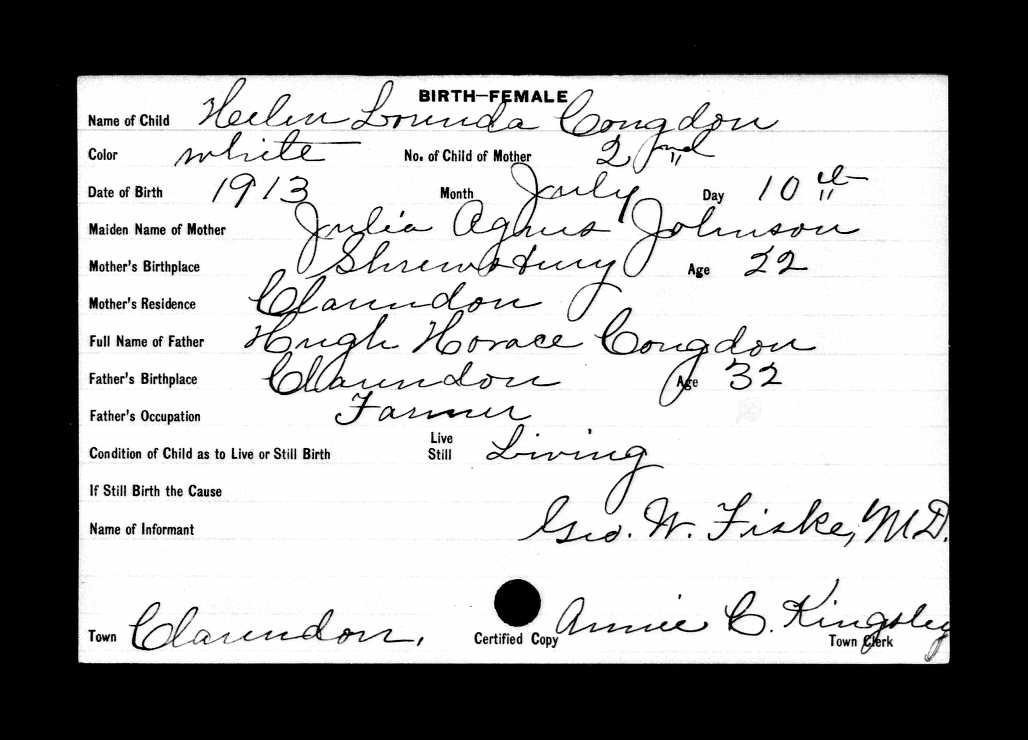 BIRTH—FEMALE
Name of Child Helen Lorinda Congdon
Color white No. of Child of Mother 2nd
Date of Birth 1913 Month July Day 10th
Maiden Name of Mother Julia Agnes Johnson
Mother's Birthplace Shrewsbury Age 22
Mother's Residence Clarendon
Full Name of Father Hugh Horace Congdon
Father's Birthplace Clarendon Age 32
Father's Occupation Farmer
Condition of Child as to Live or Still Birth Live Still Living
If Still Birth the Cause
Name of Informant Geo. W. Fiske, M.D.
Town Clarendon, Certified Copy Annie C. Kingsley
Town Clerk